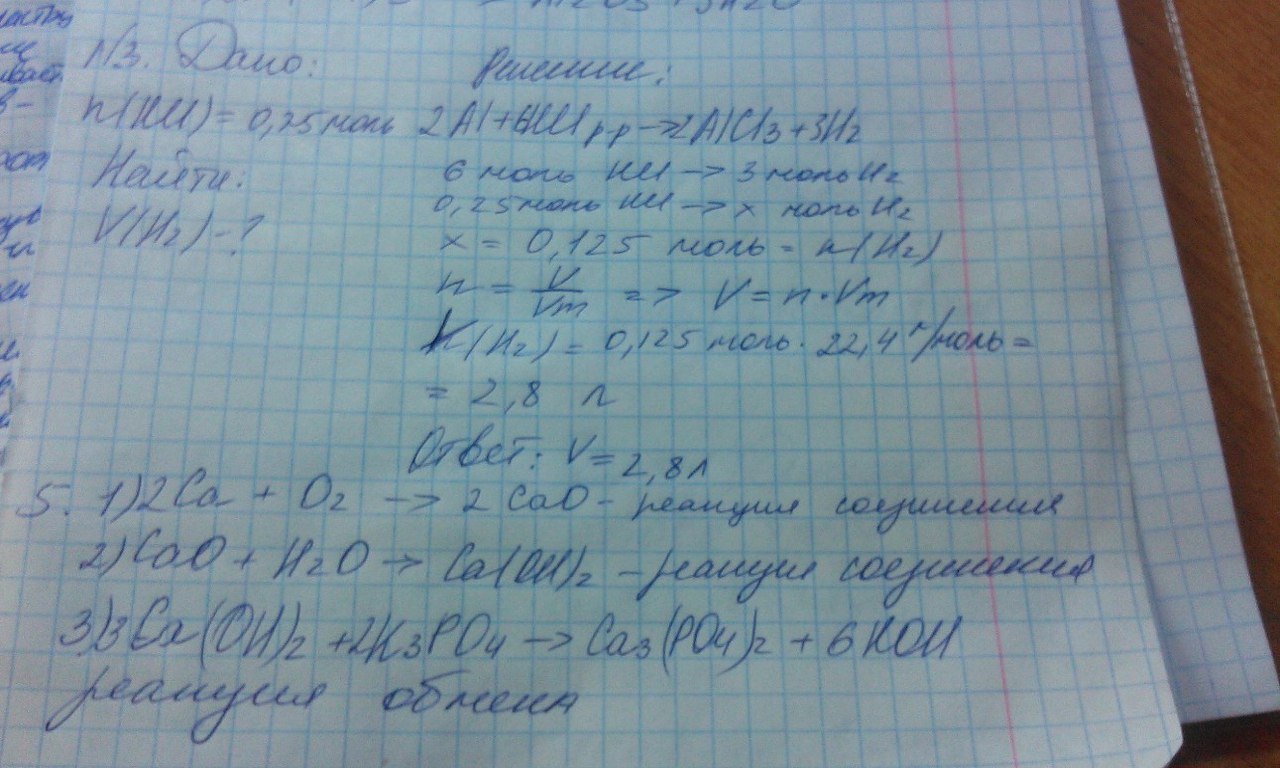 N3. Дано:
Решение:
n(HCl) = 0,25 моль
2Al + 6HCl р-р → 2AlCl3 + 3H2
Найти:
6 моль HCl → 3 моль H2
0,25 моль HCl → x моль H2
V(H2) - ?
x = 0,125 моль = n(H2)
n = V/Vm => V = n · Vm
V(H2) = 0,125 моль · 22,4 л/моль =
= 2,8 л
Ответ: V = 2,8 л
5. 1) 2Ca + O2 → 2CaO - реакция соединения
2) CaO + H2O → Ca(OH)2 - реакция соединения
3) 3Ca(OH)2 + 2K3PO4 → Ca3(PO4)2 + 6KOH
реакция обмена